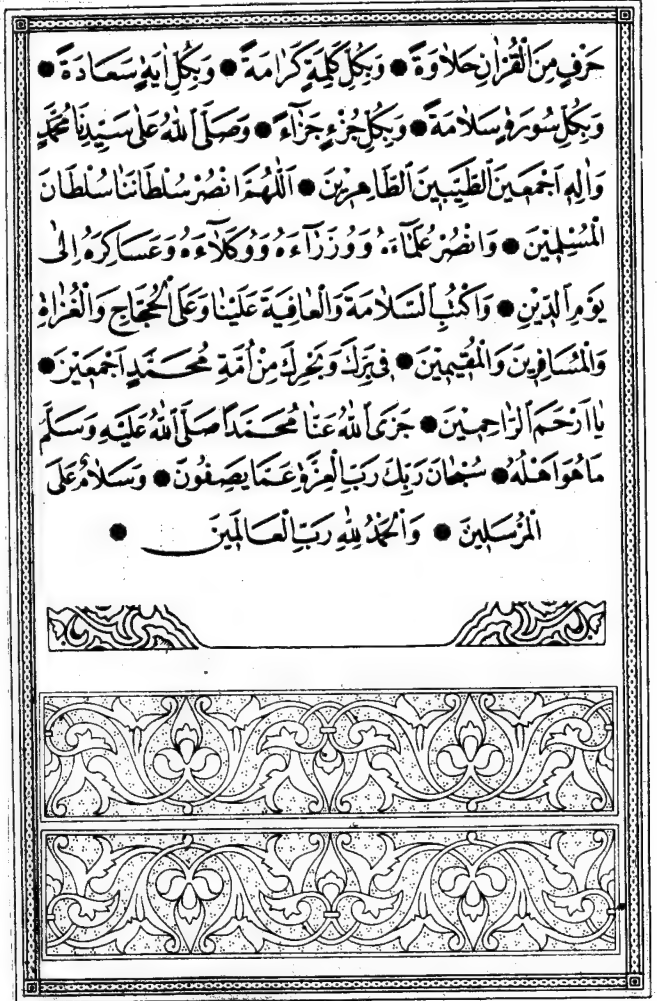 حَرْفٍ مِنَ الْقُرْاٰنِ حَلَاوَةً ● وَبِكُلِّ كَلِمَةٍ كَرَامَةً ● وَبِكُلِّ اٰيَةٍ سَعَادَةً ●
وَبِكُلِّ سُورَةٍ سَلَامَةً ● وَبِكُلِّ جُزْءٍ جَزَاءً ● وَصَلَّى اللّٰهُ عَلٰى سَيِّدِنَا مُحَمَّدٍ
وَاٰلِهِ اَجْمَعِينَ الطَّيِّبِينَ الطَّاهِرِينَ ● اَللّٰهُمَّ انْصُرْ سُلْطَانَنَا سُلْطَانَ
الْمُسْلِمِينَ ● وَانْصُرْ عُلَمَاءَهُ وَوُزَرَاءَهُ وَوُكَلَاءَهُ وَعَسَاكِرَهُ اِلٰى
يَوْمِ الدِّينِ ● وَاكْتُبِ السَّلَامَةَ وَالْعَافِيَةَ عَلَيْنَا وَعَلَى الْحُجَّاجِ وَالْغُزَاةِ
وَالْمُسَافِرِينَ وَالْمُقِيمِينَ ● فِى بَرِّكَ وَبَحْرِكَ مِنْ اُمَّةِ مُحَمَّدٍ اَجْمَعِينَ ●
يَا اَرْحَمَ الرَّاحِمِينَ ● جَزَى اللّٰهُ عَنَّا مُحَمَّدًا صَلَّى اللّٰهُ عَلَيْهِ وَسَلَّمَ
مَا هُوَ اَهْلُهُ ● سُبْحَانَ رَبِّكَ رَبِّ الْعِزَّةِ عَمَّا يَصِفُونَ ● وَسَلَامٌ عَلَى
الْمُرْسَلِينَ ● وَالْحَمْدُ لِلّٰهِ رَبِّ الْعَالَمِينَ ●